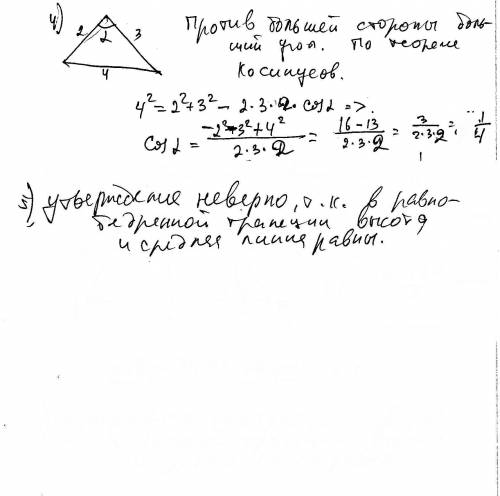 4)
2 α 3
4
Против большей стороны боль-
ший угол. По теореме
Косинусов.
4² = 2² + 3² - 2 · 3 · 2 · cos α =>
cos α = \frac{-2² - 3² + 4²}{2 · 3 · 2} = \frac{16 - 13}{2 · 3 · 2} = \frac{3}{2 · 3 · 2} = \frac{1}{4}
5) утверждение неверно, т.к. в равно-
бедренной трапеции высота
и средняя линия равны.